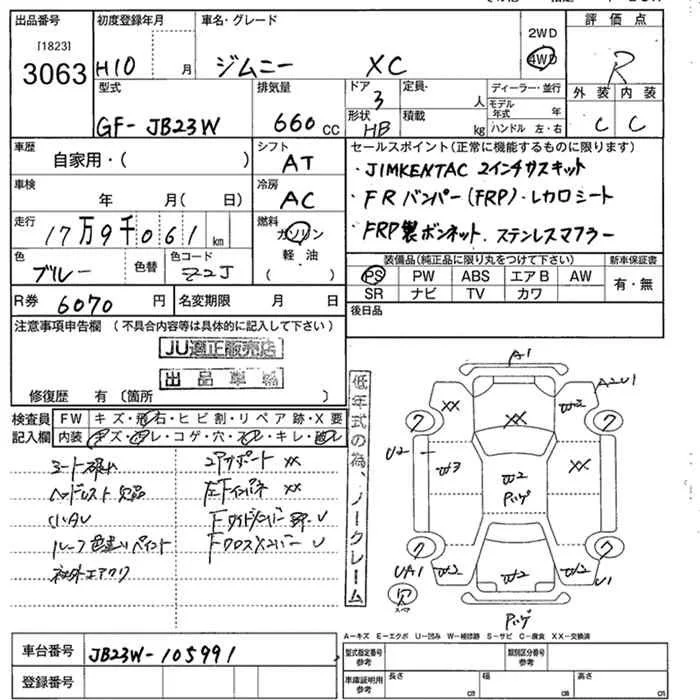 出品番号 初度登録年月 車名・グレード 2WD 評価点
[1823]
3063 H10 月 ジムニー XC 4WD R
型式 排気量 ドア 3 定員・ 人 ディーラー・並行 外装 内装
GF- JB23W 660 CC 形状 HB 積載 kg モデル年式 年 C C
ハンドル 左・右
車歴 自家用・( ) シフト AT セールスポイント(正常に機能するものに限ります)
車検 年 月( 日) 冷房 AC ・JIMKENTAC 2インチUスキット
走行 17万9千061 km 燃料 ガソリン 軽油 ( ) ・FRバンパー(FRP)・レカロシート
色 ブルー 色替 色コード Z2J ・FRP製ボンネット・ステンレスマフラー
装備品(純正品に限り丸をつけて下さい) 新車保証書
PS PW ABS エアB AW 有・無
SR ナビ TV カワ
R券 6070 円 名変期限 月 日 後日品
注意事項申告欄 (不具合内容等は具体的に記入して下さい)
JU適正販売店
出品車輌
修復歴 有 〔箇所 〕
検査員 FW キズ・飛石・ヒビ割・リペア跡・X要
記入欄 内装 キズ・ヨレ・コゲ・穴・スレ・キレ・破レ
シート破れ コアサポート XX
ヘッドレスト欠品 左Fインパネ XX
Fサイドメンバー U
ルーフ色塗りペイント Fクロスメンバー U
社外エアクリ
低年式の為、ノークレーム
A1
A2U1
XX XX W2
U2 W3 W2 XX
パハゲ
UA1 W2 W2 W2 U1
穴
スペア パハゲ
A－キズ E－エクボ U－凹み W－補修跡 S－サビ C－腐食 XX－交換済
車台番号 JB23W-105991
登録番号
型式指定番号 参考 類別区分番号 参考
車庫証明用 参考 長さ cm 幅 cm 高さ cm